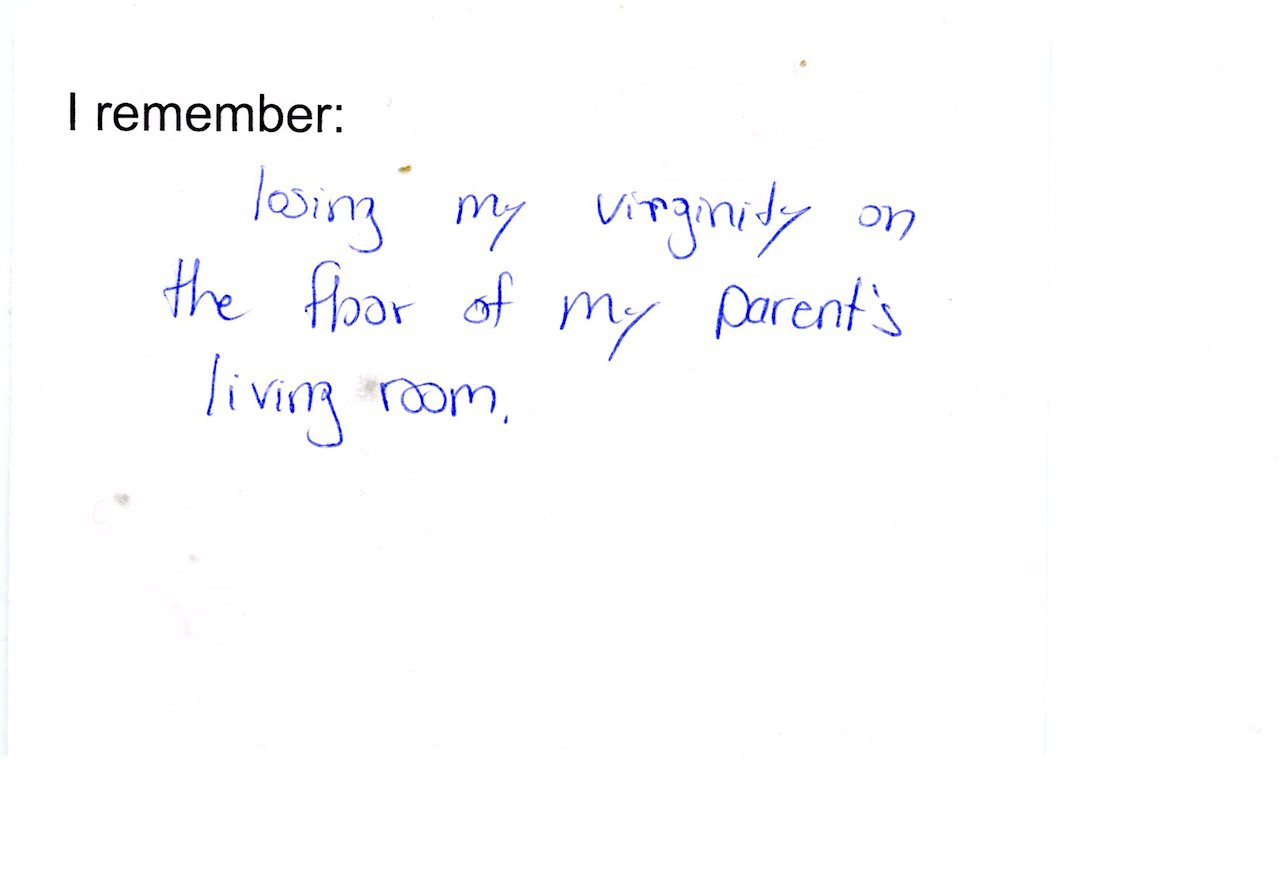 I remember:
losing my virginity on
the floor of my parent's
living room.